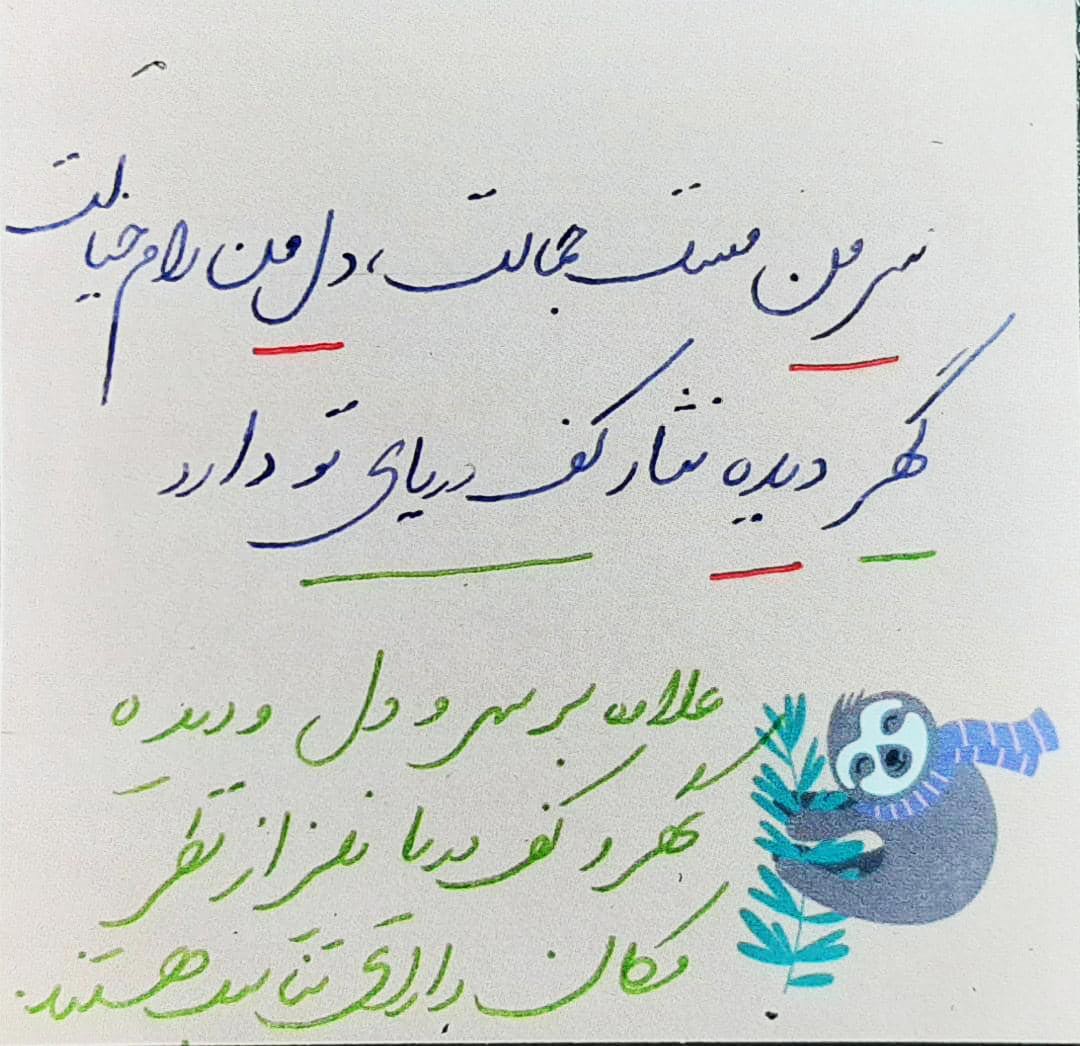 سر من مست جمالت، دل من رام خیالت
گهر دیده نثار کف دریای تو دارد
علاوه بر سر و دل و دیده
گهر و کف دریا نیز از نظر
مکان دارای تناسب هستند.